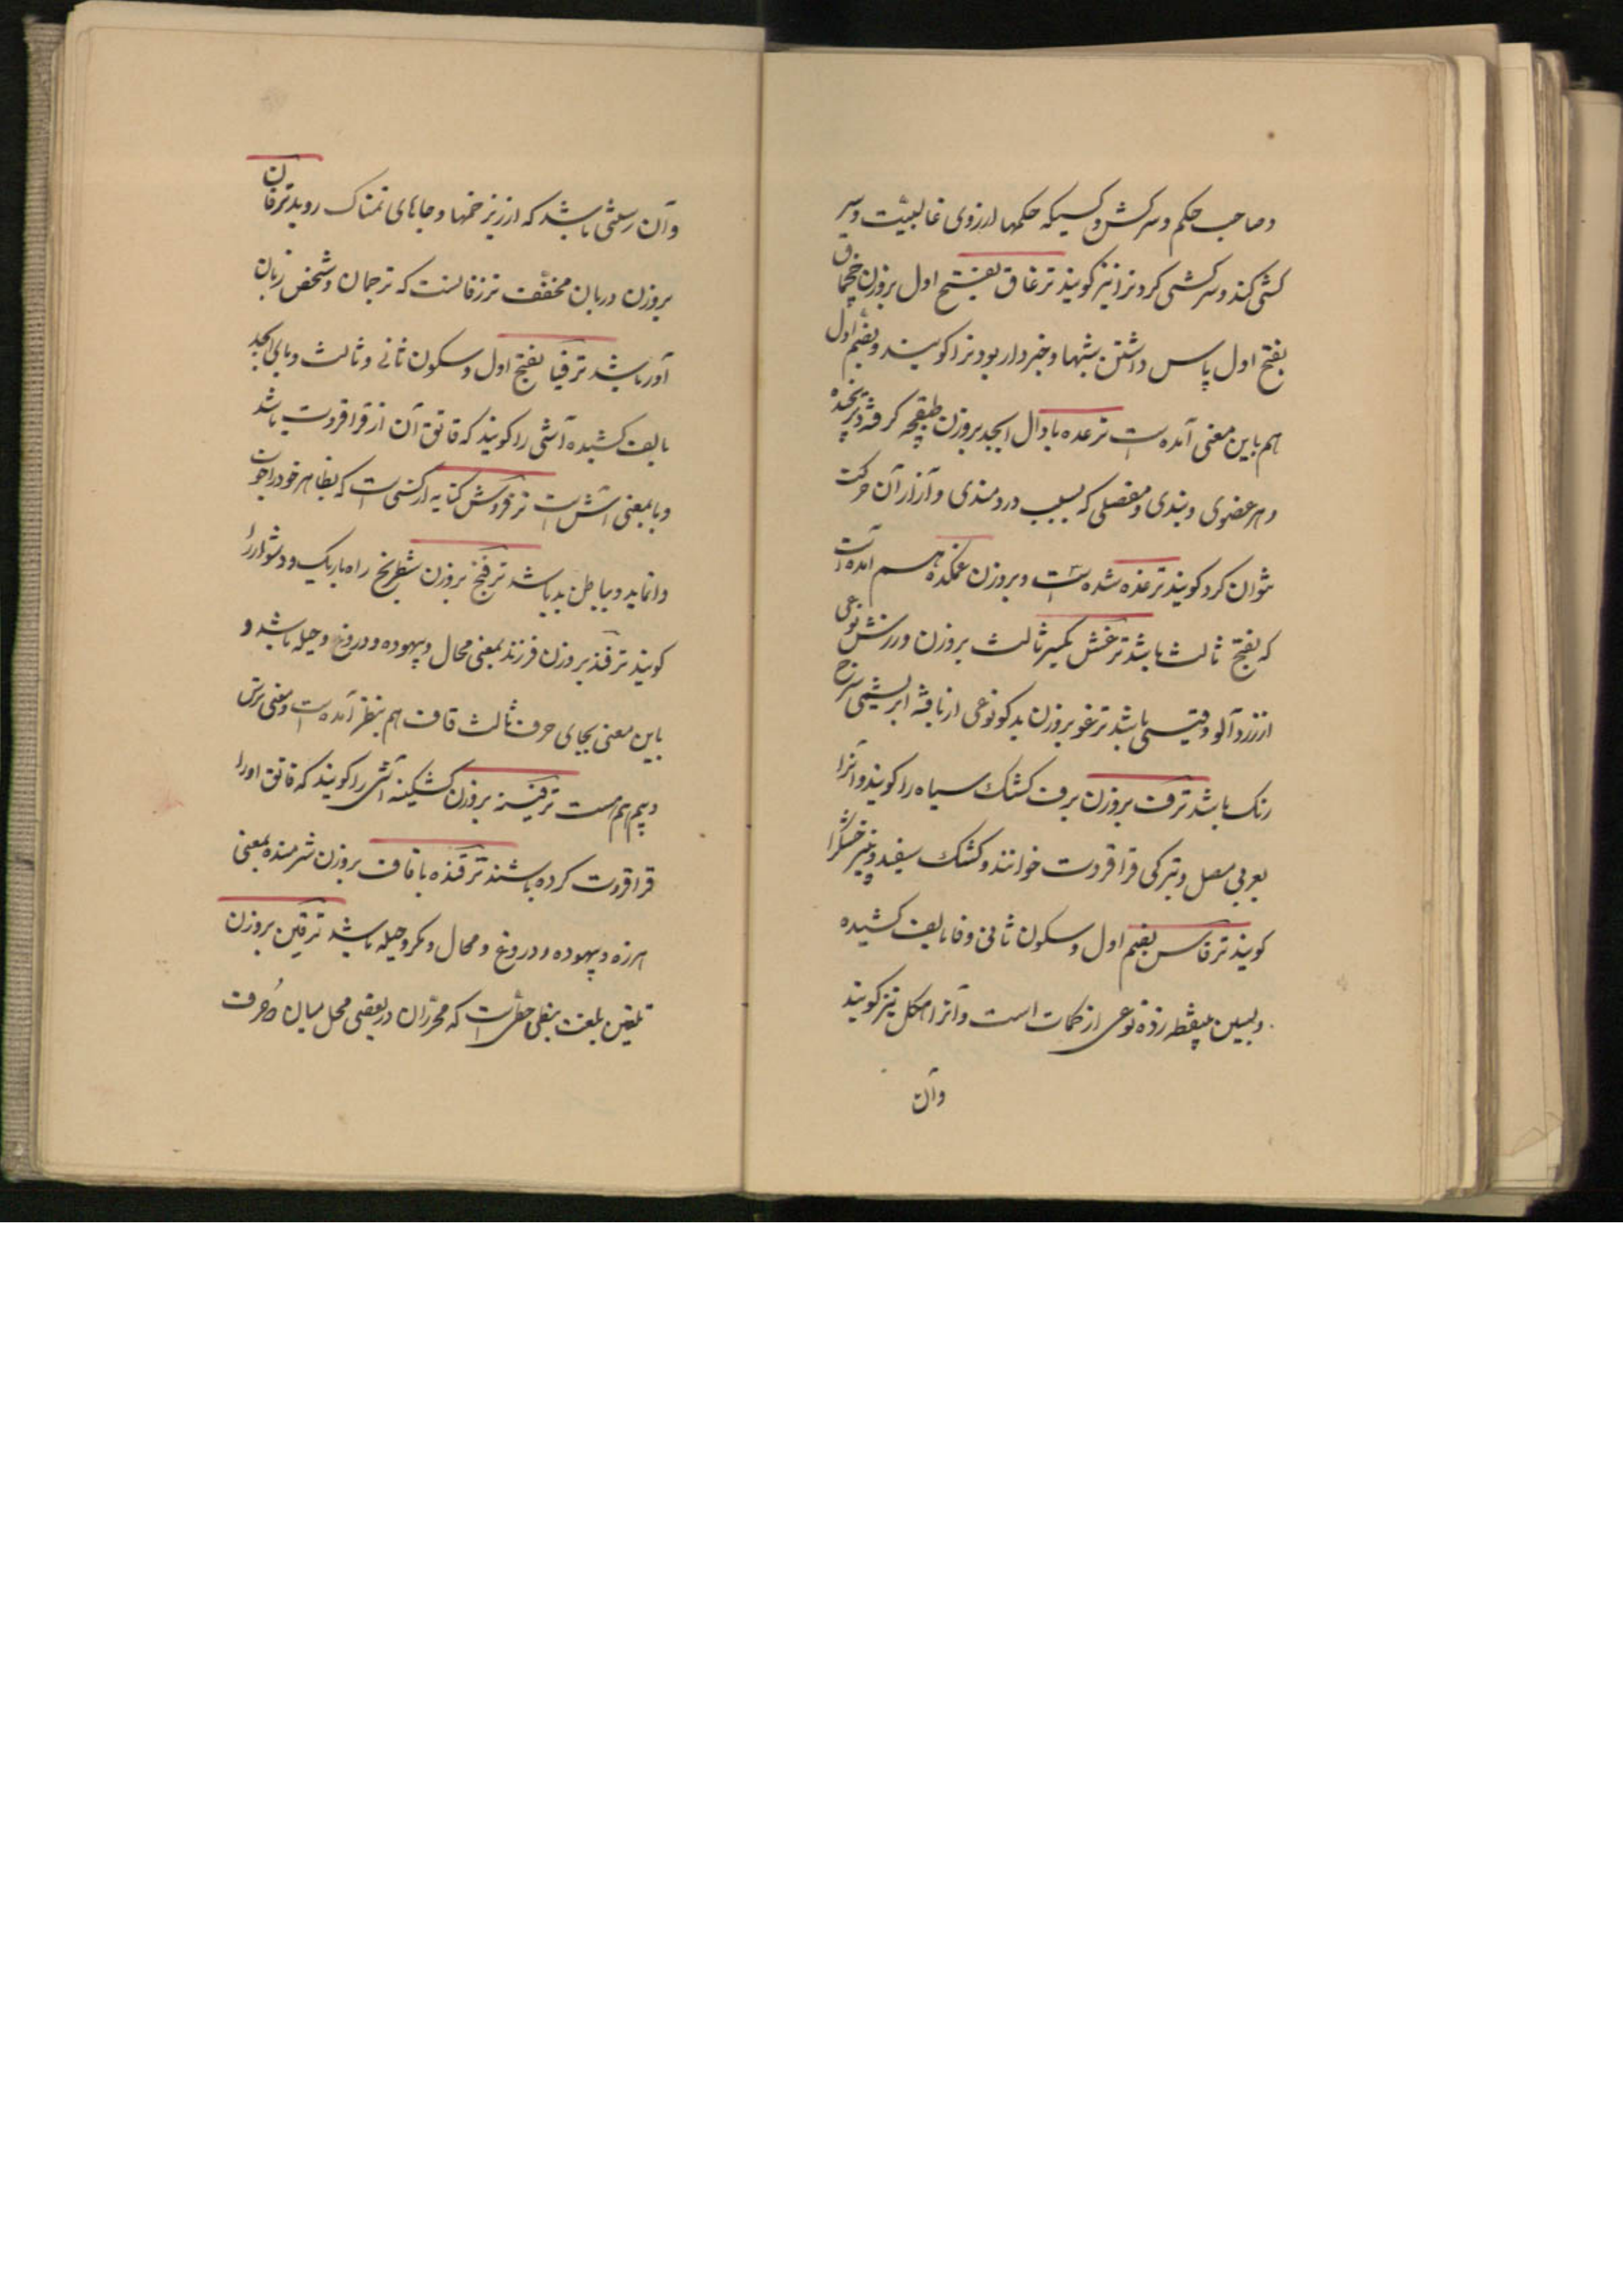 و صاحب حکم و سرکش و کسیکه حکمها از روی غالبیت و سر
کشی کند و سرکشی کردنرا نیز کویند ترغاق بفتح اول بروزن چخماق
بفتح اول پاس داشتن شبها و خبردار بودنرا کویند و بضم اول
هم باین معنی آمده است ترغده با دال ابجد بروزن طبقچه کرفته
و هر عضوی و بندی و مفصلی که بسبب دردمندی و آزار آن حرکت
نتوان کرد کویند ترغده شده است و بروزن غمکده هم آمده است
که بفتح ثالث باشد ترغش بکسر ثالث بروزن ورزش نوعی
از زردآلو و قیسی باشد ترغو بروزن بدکو نوعی از بافته ابریشمی سرخ
رنک باشد ترف بروزن برف کشک سیاه را کویند و آنرا
بعربی مصل و بترکی قراقروت خوانند و کشک سفید و پنیر خشک را
کویند ترفاس بضم اول و سکون ثانی و فا بالف کشیده
و بسین بینقطه زده نوعی از کمات است و آنرا هکل نیز کویند
وآن
وآن رستنی باشد که از زیر خمها و جاهای نمناک روید ترفان
بروزن دربان مخفف ترزفانست که ترجمان و شخص زبان
آور باشد ترفبا بفتح اول و سکون ثانی و ثالث و بای ابجد
بالف کشیده آشی را کویند که قاتق آن از قراقروت باشد
و با بمعنی آش است ترفروش کنایه از کسی است که بظاهر خود را خوب
وانماید و بباطن بد باشد ترفنج بروزن شطرنج راه باریک و دشوار را
کویند ترفند بروزن فرزند بمعنی محال و بیهوده و دروغ و حیله باشد و
باین معنی بجای حرف ثالث قاف هم بنظر آمده است و بمعنی ترس
و بیم هم هست ترفینه بروزن کشکینه آشی را کویند که قاتق او را
قراقروت کرده باشند ترقنده با قاف بروزن شرمنده بمعنی
هرزه و بیهوده و دروغ و محال و مکر و حیله باشد ترقین بروزن
تلقین بلغت نبطی خطی است که محرران در بعضی محل میان دو حرف